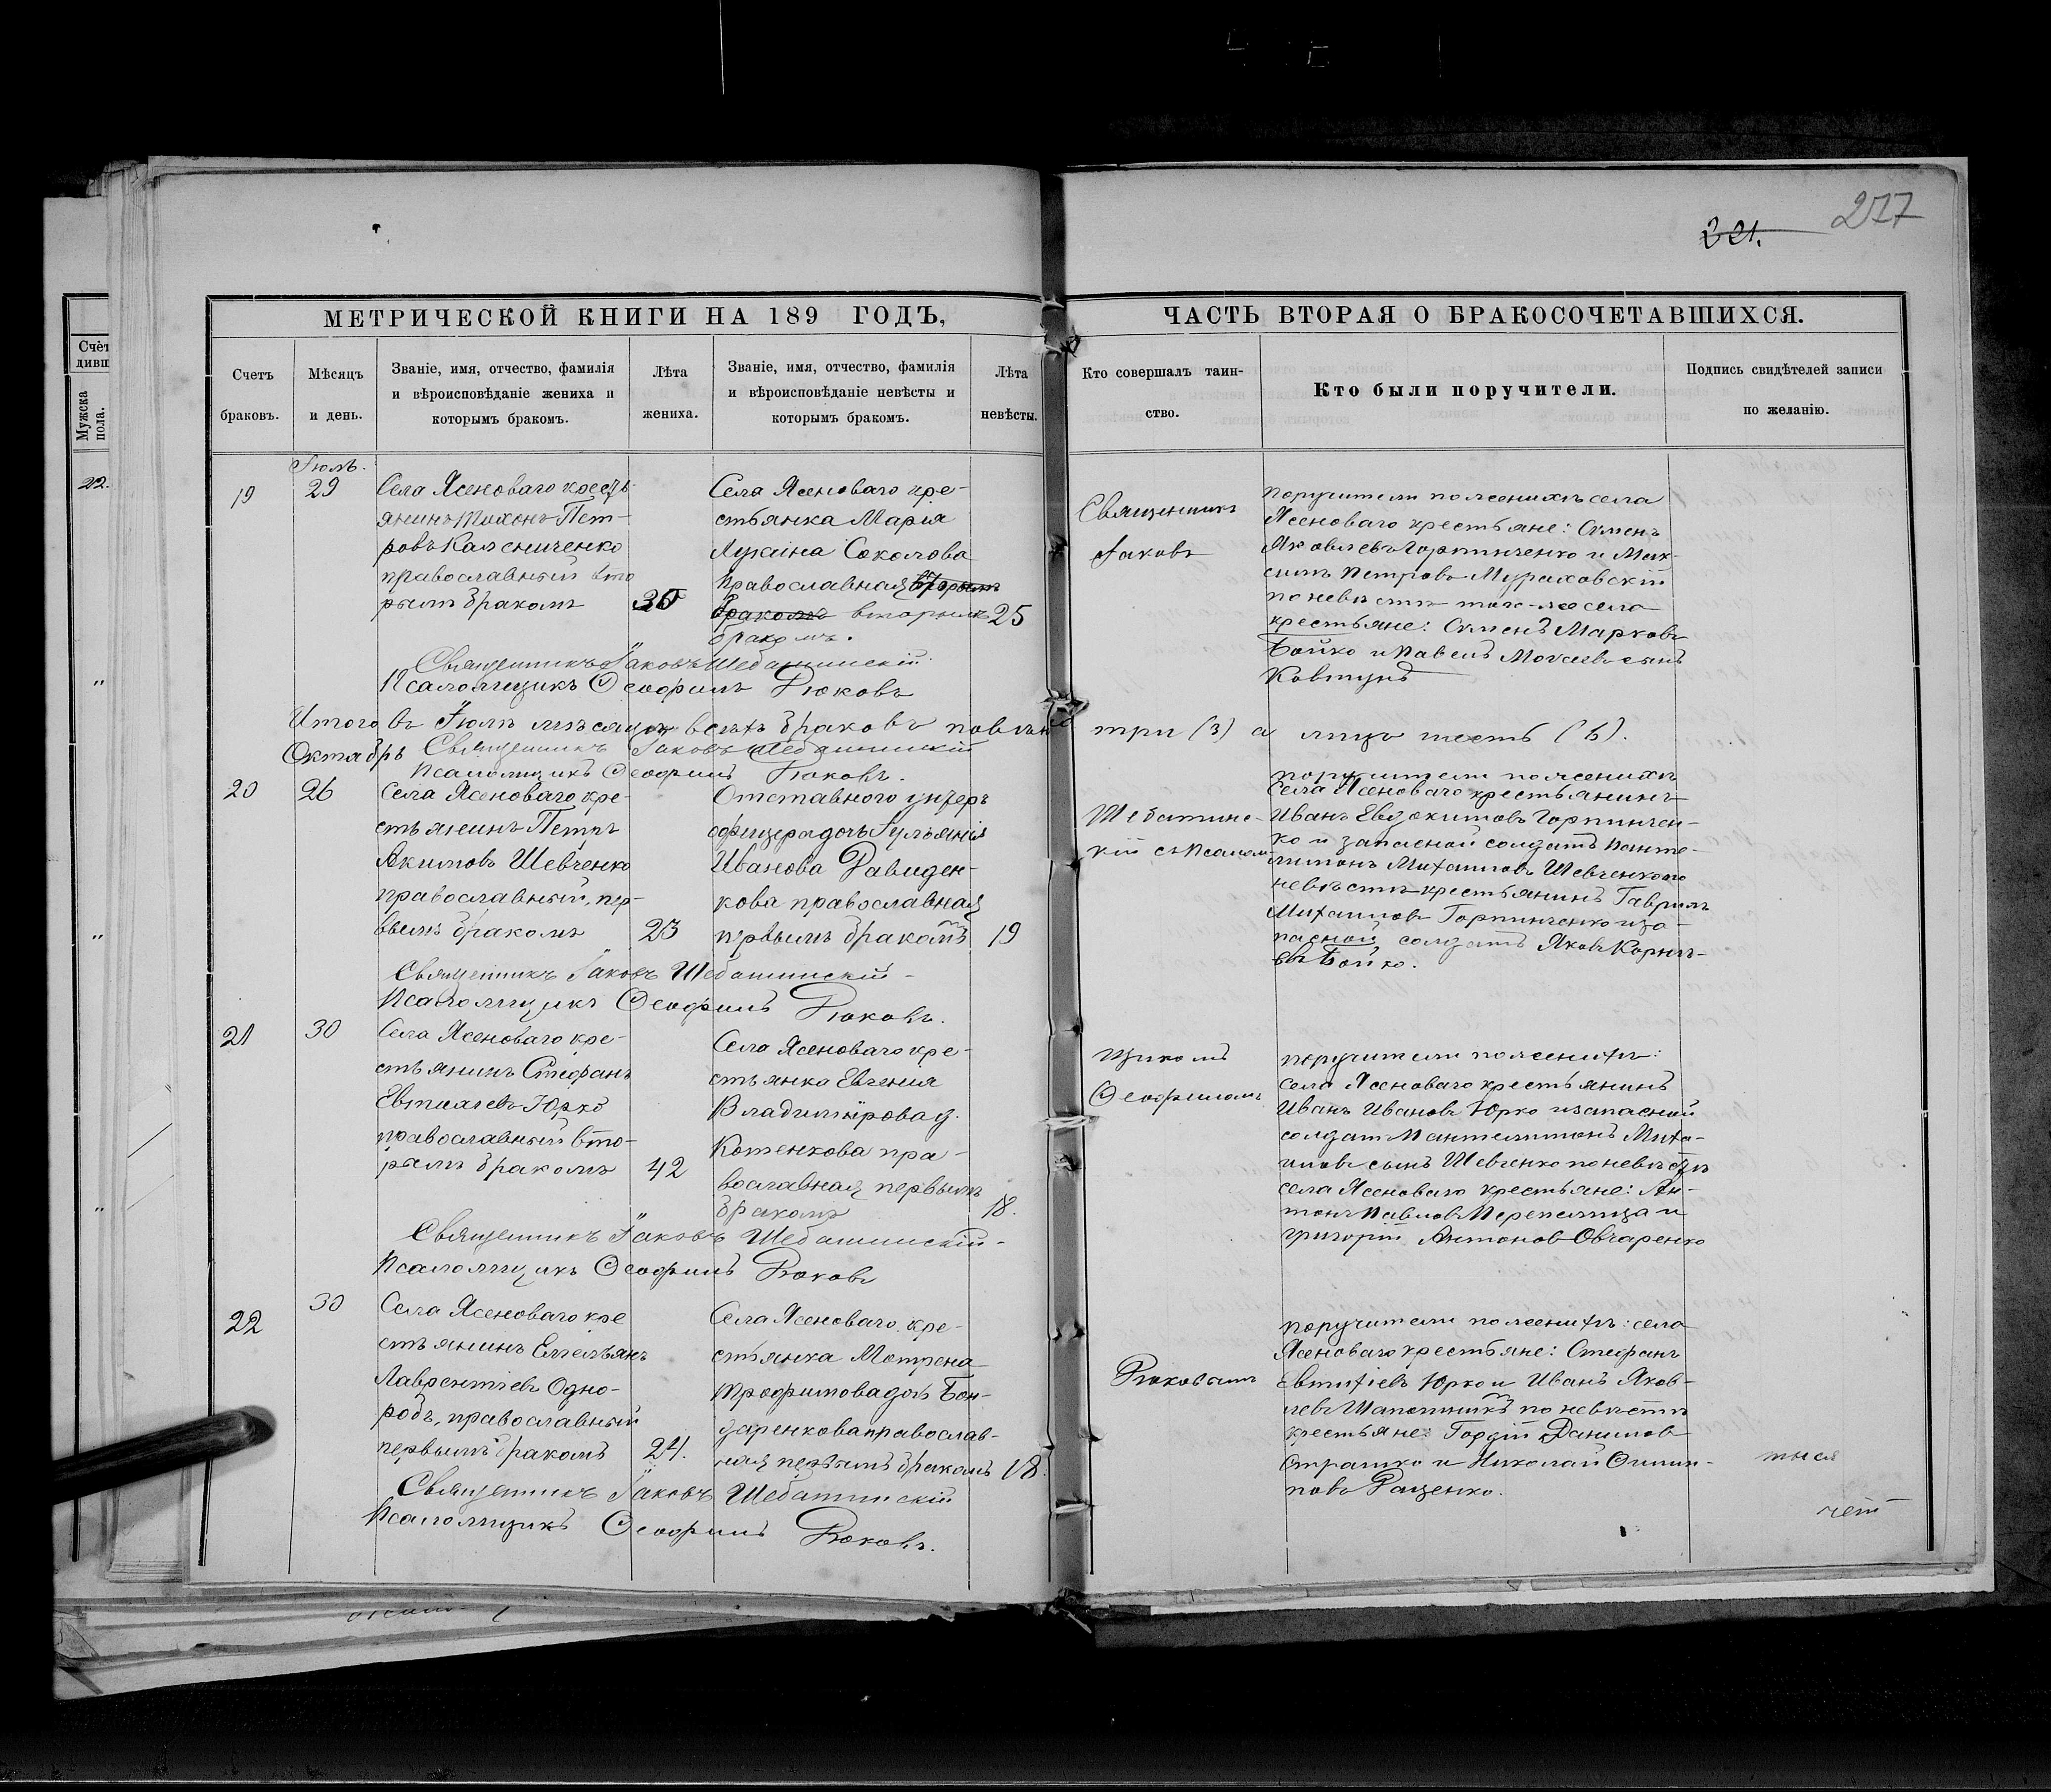 277
321.
МЕТРИЧЕСКОЙ КНИГИ НА 189 ГОДЪ,
ЧАСТЬ ВТОРАЯ О БРАКОСОЧЕТАВШИХСЯ.
Счетъ браковъ.
Мѣсяцъ и день.
Званіе, имя, отчество, фамилія
и вѣроисповѣданіе жениха и
которымъ бракомъ.
Лѣта жениха.
Званіе, имя, отчество, фамилія
и вѣроисповѣданіе невѣсты и
которымъ бракомъ.
Лѣта невѣсты.
Кто совершалъ таин-
ство.
Кто были поручители.
Подпись свидѣтелей записи
по желанію.
Мужска
пола.
22.
Іюль.
19
29
Села Ясеноваго кресть-
янинъ Тихонъ Пет-
ровъ Калениченко
православный вто
рымъ бракомъ
Села Ясеноваго кре-
стьянка Марія
Лукина Соколова
православная вторымъ
бракомъ вторымъ 25
бракомъ.
Священникъ
Іаковъ
поручители по женихѣ села
Ясеноваго крестьяне: Семенъ
Яковлевъ Горпинченко и Мак-
симъ Петровъ Мураховскій
по невѣстѣ того-же села
крестьяне: Семенъ Марковъ
Бойко и Павелъ Моисеевъ сынъ
Ковтунъ
Священникъ Іаковъ Шебатинскій.
Псаломщикъ Ѳеофилъ Рюковъ
Итого въ Іюлѣ мѣсяцѣ всѣхъ браковъ повѣнч три (3) а лицъ шесть (6).
Священникъ Іаковъ Шебатинскій
Псаломщикъ Ѳеофилъ Рюковъ.
Октябрь
20
26
Села Ясеноваго кре-
стьянинъ Петръ
Акимовъ Шевченко
православный, пер-
вымъ бракомъ
23
Отставного унтеръ
офицера дочь Іульянія
Иванова Давиден-
кова православная
первымъ бракомъ
19
Шебатинс-
кій съ Псалом
поручители по женихѣ
села Ясеноваго крестьянинъ
Иванъ Евдокимовъ Горпинчен-
ко и запасной солдатъ Панте-
лимонъ Михаиловъ Шевченко по
невѣстѣ крестьянинъ Гавріилъ
Михаиловъ Горпинченко и за-
пасной солдатъ Яковъ Корнѣ-
евъ Бойко.
Священникъ Іаковъ Шебатинскій
Псаломщикъ Ѳеофилъ Рюковъ.
21
30
Села Ясеноваго кре-
стьянинъ Стефанъ
Евтихіевъ Юрко
православный вто-
рымъ бракомъ
42
Села Ясеноваго кре-
стьянка Евгенія
Владимірова д.
Котенкова пра-
вославная первымъ
бракомъ
18.
щикомъ
Ѳеофиломъ
поручители по женихѣ:
села Ясеноваго крестьянинъ
Иванъ Ивановъ Юрко и запасной
солдат Пантелимонъ Миха-
иловъ сынъ Шевченко по невѣстѣ
села Ясеноваго крестьяне: Ан-
тонъ Павловъ Перепелица и
Григорій Антоновъ Овчаренко
Священникъ Іаковъ Шебатинскій-
Псаломщикъ Ѳеофилъ Рюковъ
22
30
Села Ясеноваго кре
стьянинъ Емельянъ
Лаврентіевъ Одно-
родъ, православный
первымъ бракомъ
24.
Села Ясеноваго кре-
стьянка Мотрена
Трофимова дочь Бон-
даренкова православ-
ная первымъ бракомъ
18.
Рюковымъ
поручители по женихѣ: села
Ясеноваго крестьяне: Стефанъ
Евтихіевъ Юрко и Иванъ Яков-
левъ Шапошникъ по невѣстѣ
крестьяне: Гордій Даниловъ
Страшко и Николай Филип-
повъ Даценко.
Священникъ Іаковъ Шебатинскій
Псаломщикъ Ѳеофилъ Рюковъ.